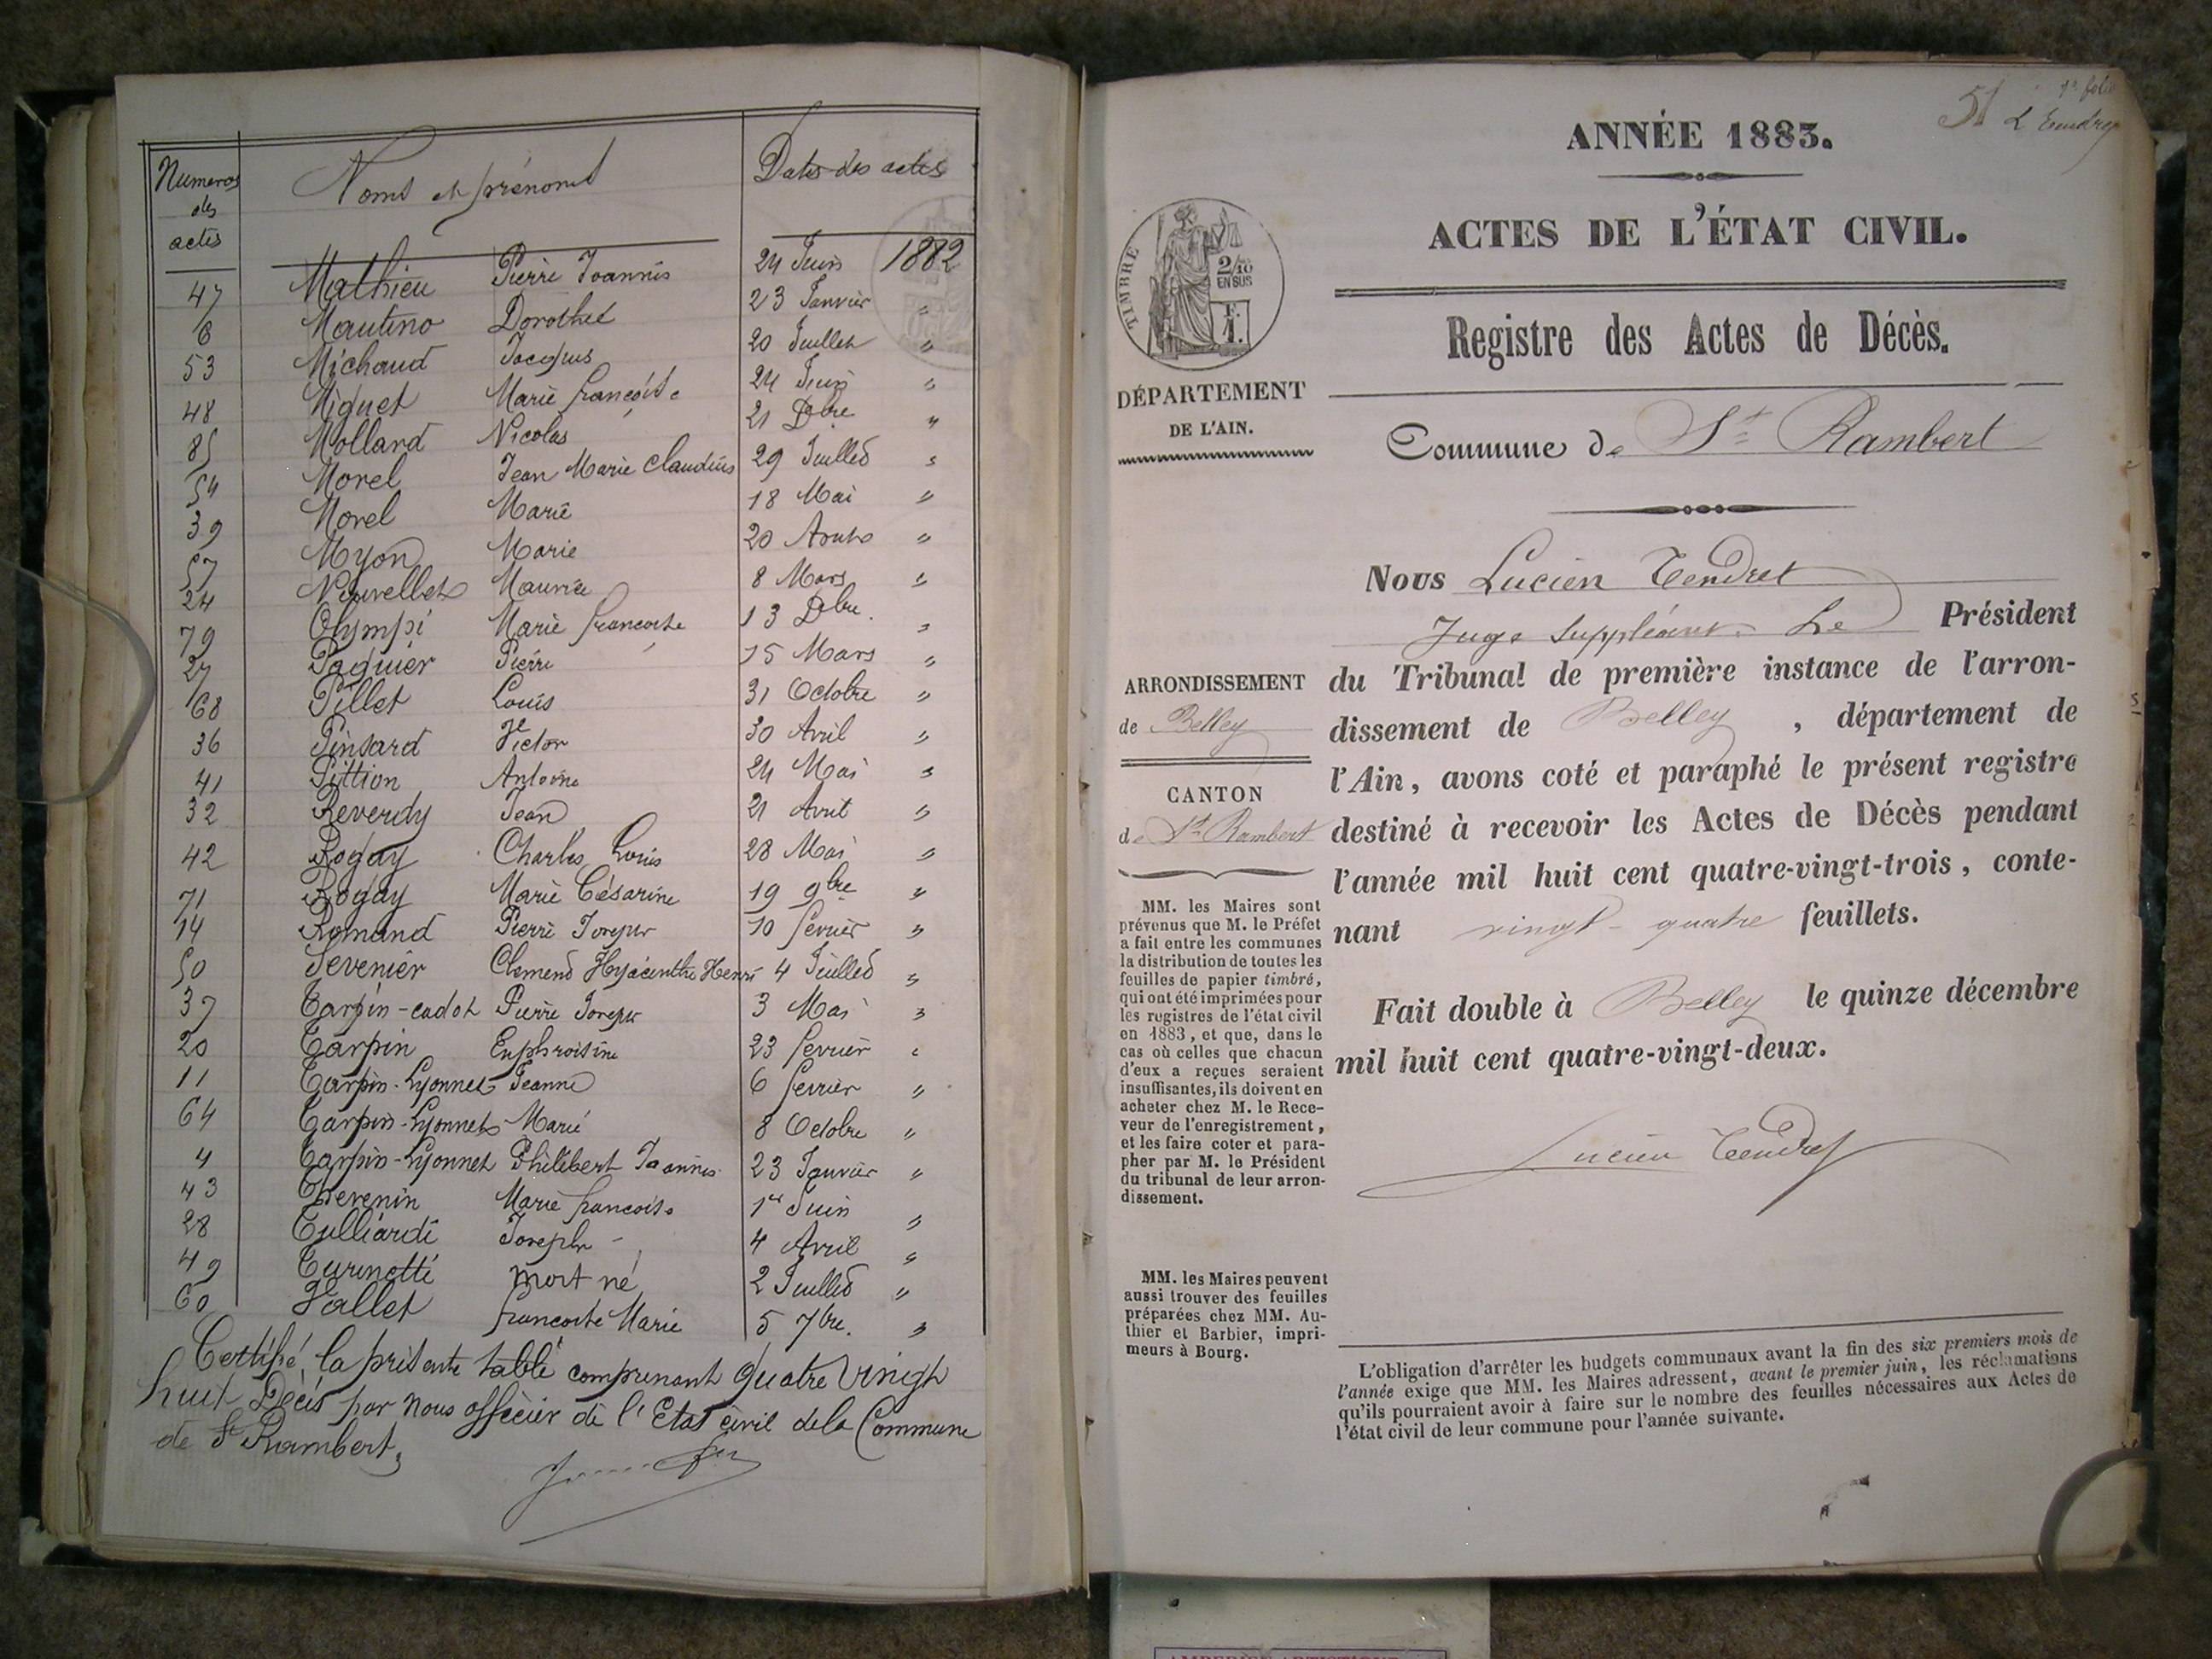 Numeros des actes	Noms et prénoms	Dates des actes
47	Mathieu	Pierre Joannès	24 Juin 1882
6	Mautino	Dorothée	23 Janvier "
53	Michaud	Jacques	20 Juillet "
48	Miguet	Marie françoise	24 Juin "
85	Mollard	Nicolas	21 Dbre "
54	Morel	Jean Marie Claudius	29 Juillet "
39	Morel	Marie	18 Mai "
57	Myon	Marie	20 Aout "
24	Neuvellet	Maurice	8 Mars "
79	Olympi	Marie francoise	13 Dbre. "
27	Paguier	Pierre	15 Mars "
68	Pillet	Louis	31 Octobre "
36	Pinsard	Victor	30 Avril "
41	Pittion	Antoine	24 Mai "
32	Reverdy	Jean	21 Avril "
42	Rogay	Charles Louis	28 Mai "
71	Rogay	Marie Césarine	19 9bre "
14	Romand	Pierre Joseph	10 fevrier "
50	Sevenier	Clement Hyacinthe Henri	4 Juillet "
37	Tarpin-cadot	Pierre Joseph	3 Mai "
20	Tarpin	Euphroisine	23 fevrier "
11	Tarpin-Lyonnet	Jeanne	6 fevrier "
64	Tarpin-Lyonnet	Marie	8 Octobre "
4	Tarpin-Lyonnet	Philibert Joannès	23 Janvier "
43	Thevenin	Marie francoise	1er Juin "
28	Tulliardi	Joseph	4 Avril "
49	Turinetti	mort né	2 Juillet "
60	Vallet	francoise Marie	5 7bre. "
Certifié, la présente table comprenant quatre vingt
huit Décès par nous officier de l'Etat civil de la Commune
de St Rambert,
51
1er folio
L Tendret
ANNÉE 1883.
ACTES DE L'ÉTAT CIVIL.
TIMBRE
2/10
EN SUS
F.
1.
Registre des Actes de Décès.
DÉPARTEMENT
DE L'AIN.
Commune de St Rambert
Nous Lucien Tendret
Juge Suppléant Le Président
du Tribunal de première instance de l'arron-
dissement de Belley, département de
l'Ain, avons coté et paraphé le présent registre
destiné à recevoir les Actes de Décès pendant
l'année mil huit cent quatre-vingt-trois, conte-
nant vingt-quatre feuillets.
Fait double à Belley le quinze décembre
mil huit cent quatre-vingt-deux.
Lucien Tendret
ARRONDISSEMENT
de Belley
CANTON
de St Rambert
MM. les Maires sont
prévenus que M. le Préfet
a fait entre les communes
la distribution de toutes les
feuilles de papier timbré,
qui ont été imprimées pour
les registres de l'état civil
en 1883, et que, dans le
cas où celles que chacun
d'eux a reçues seraient
insuffisantes, ils doivent en
acheter chez M. le Rece-
veur de l'enregistrement,
et les faire coter et para-
pher par M. le Président
du tribunal de leur arron-
dissement.
MM. les Maires peuvent
aussi trouver des feuilles
préparées chez MM. Au-
thier et Barbier, impri-
meurs à Bourg.
L'obligation d'arrêter les budgets communaux avant la fin des six premiers mois de
l'année exige que MM. les Maires adressent, avant le premier juin, les réclamations
qu'ils pourraient avoir à faire sur le nombre des feuilles nécessaires aux Actes de
l'état civil de leur commune pour l'année suivante.